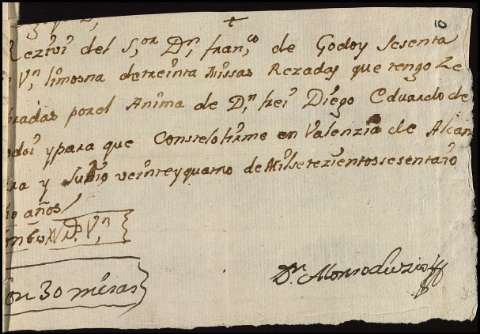 10
Rezivi del S.or Dn. fran.co de Godoy sesenta
Vn limosna de treinta Missas Rezadas que tengo Ze
bradas por el Anima de Dn. frei Diego Eduardo de
odoi y para que Conste lo firmo en Valenzia de Alcan
ra y Junio veinte y quatro de Mil setezientos sesenta
io años
Vn
on 30 misas
Dn. Alonso